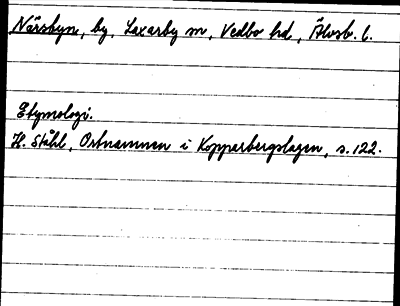 Närsbyn, by, Laxarby sn, Vedbo hd, Älvsb. l.
Etymologi.
H. Ståhl, Ortnamnen i Kopparbergslagen, s. 122.